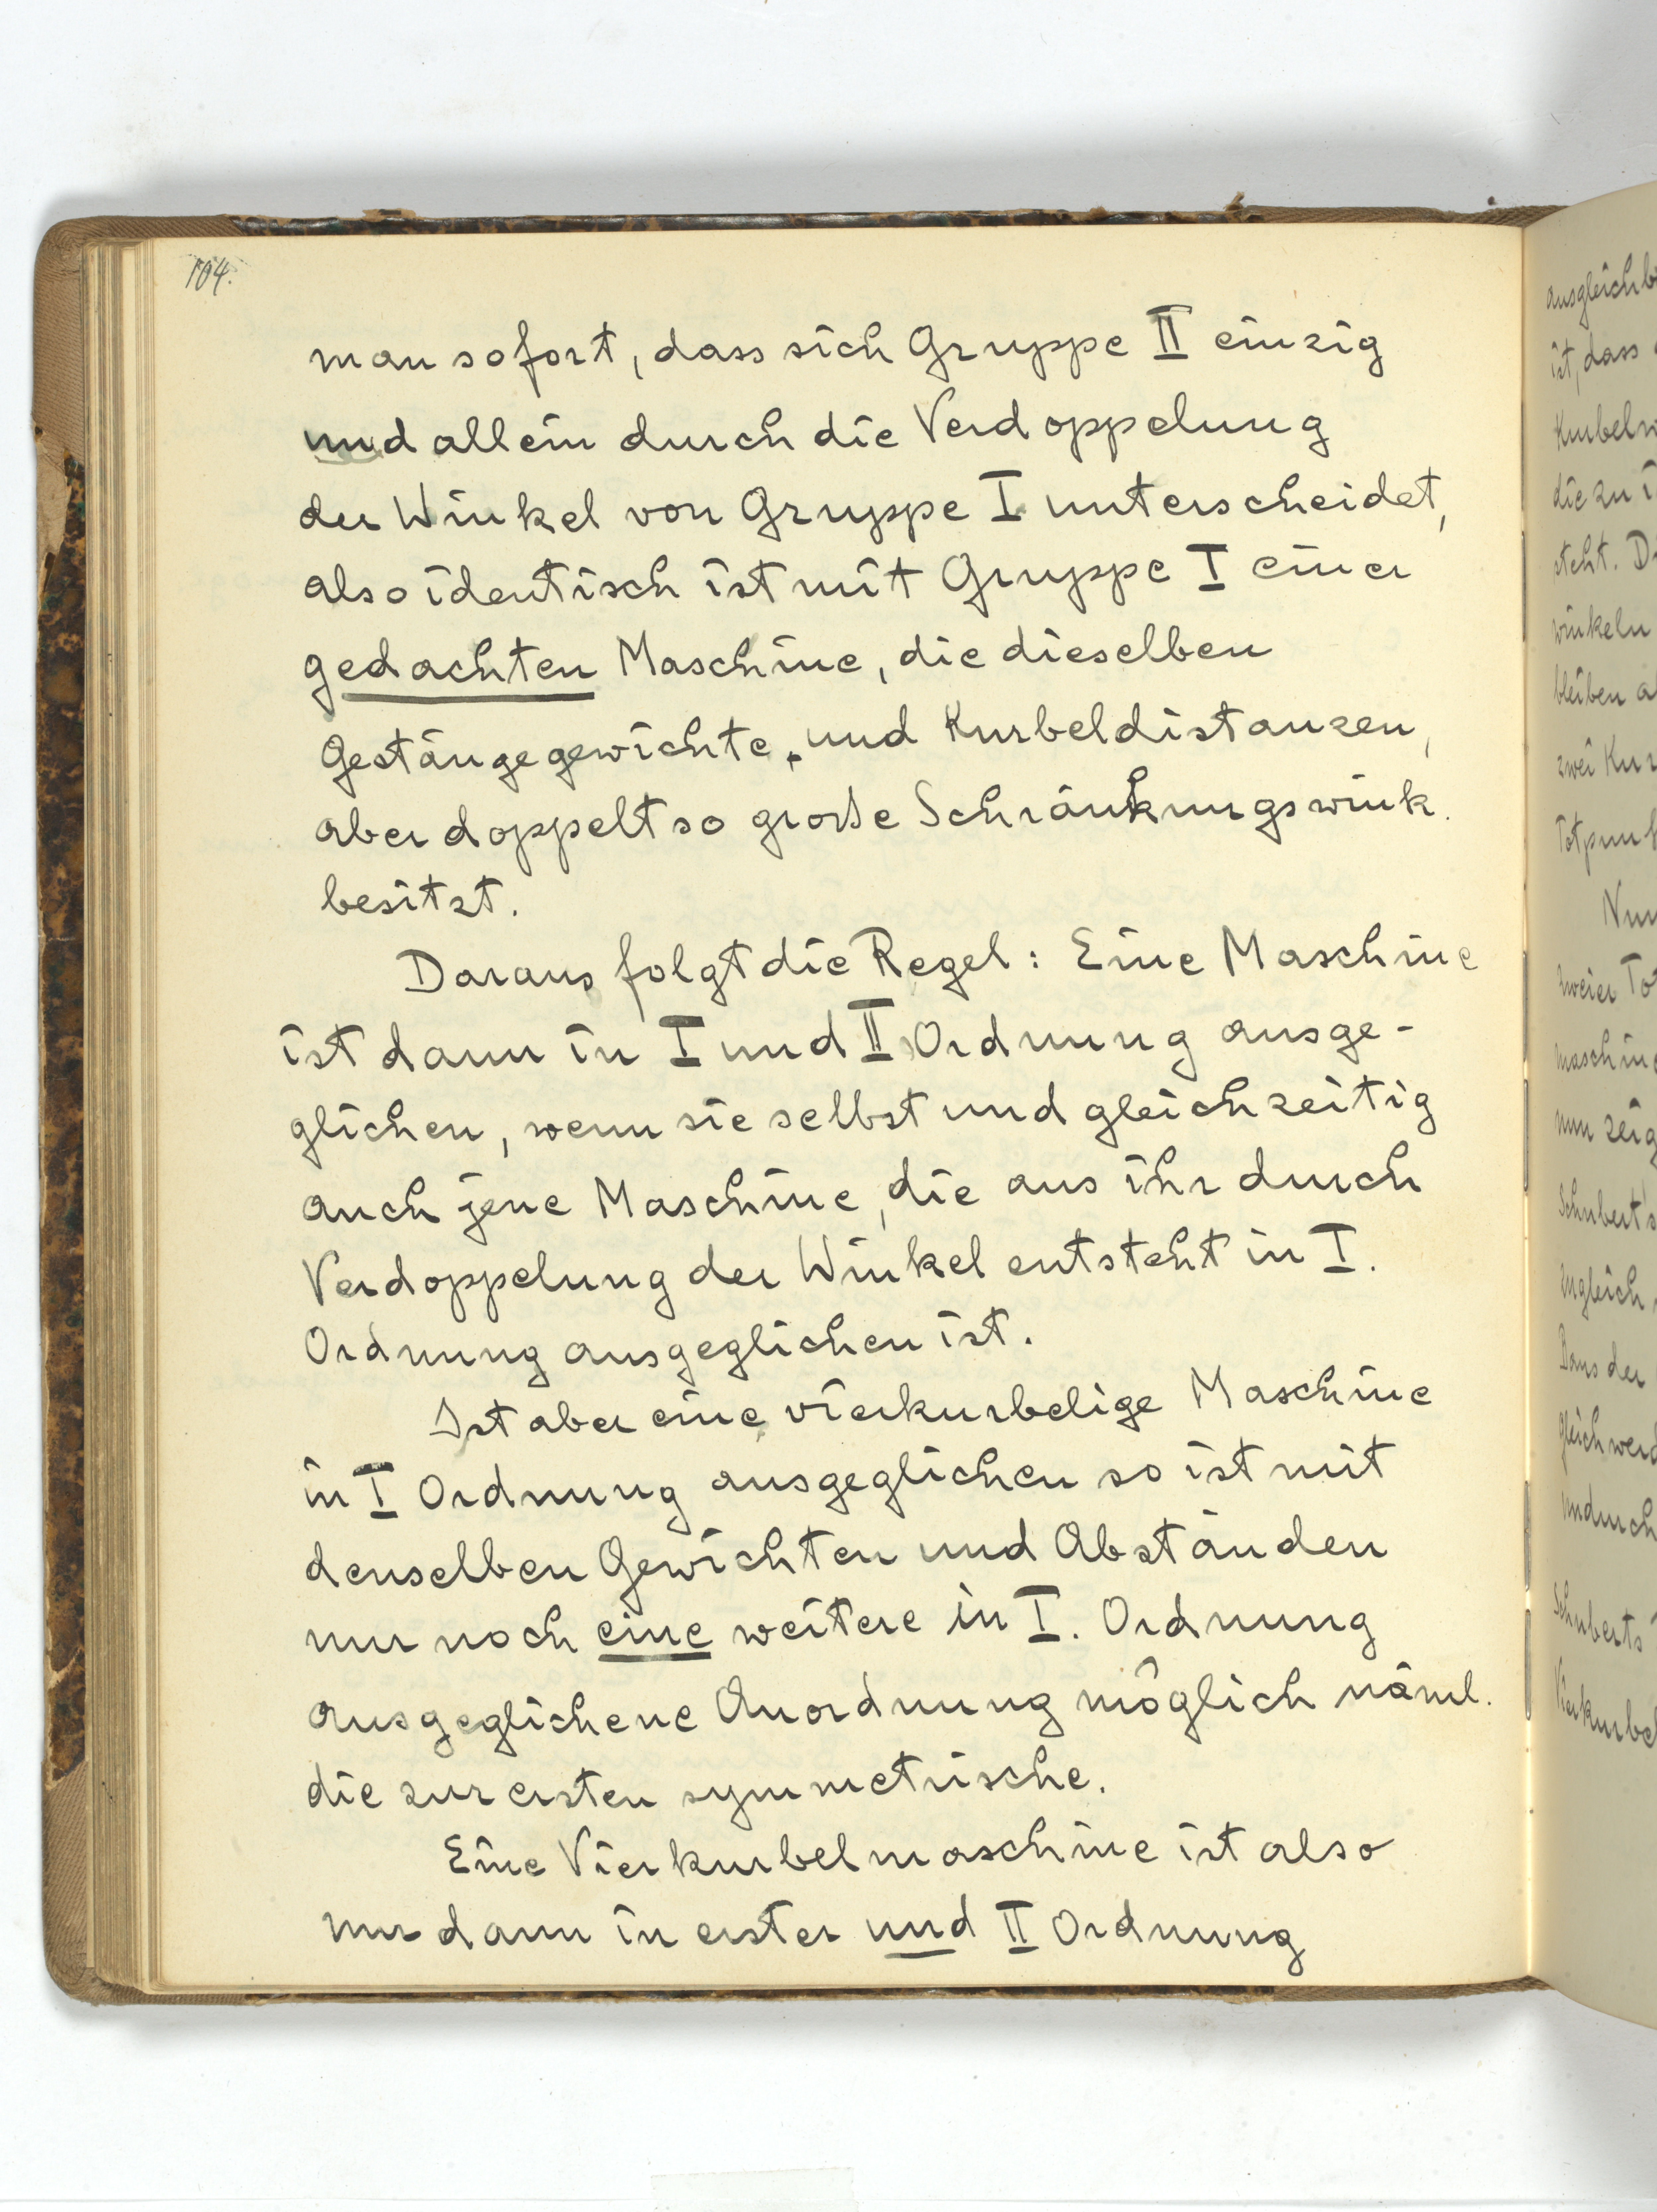 104.
man sofort, dass sich Gruppe II einzig
und allein durch die Verdoppelung
der Winkel von Gruppe I unterscheidet,
also identisch ist mit Gruppe I einer
gedachten Maschine, die dieselben
Gestängegewichte, und Kurbeldistanzen,
aber doppelt so große Schränkungswink.
besitzt.
Daraus folgt die Regel: Eine Maschine
ist dann in I und II Ordnung ausge-
glichen, wenn sie selbst und gleichzeitig
auch jene Maschine, die aus ihr durch
Verdoppelung der Winkel entsteht in I.
Ordnung ausgeglichen ist.
Ist aber eine vierkurbelige Maschine
in I Ordnung ausgeglichen so ist mit
denselben Gewichten und Abständen
nur noch eine weitere in I. Ordnung
ausgeglichene Anordnung möglich näml.
die zur ersten symmetrische.
Eine Vierkurbelmaschine ist also
nur dann in erster und II Ordnung
ist, dass
die zu
steht.
winkeln
bleiben
zwei
Nun
zweier
nun
Schubert's
der
Schuberts